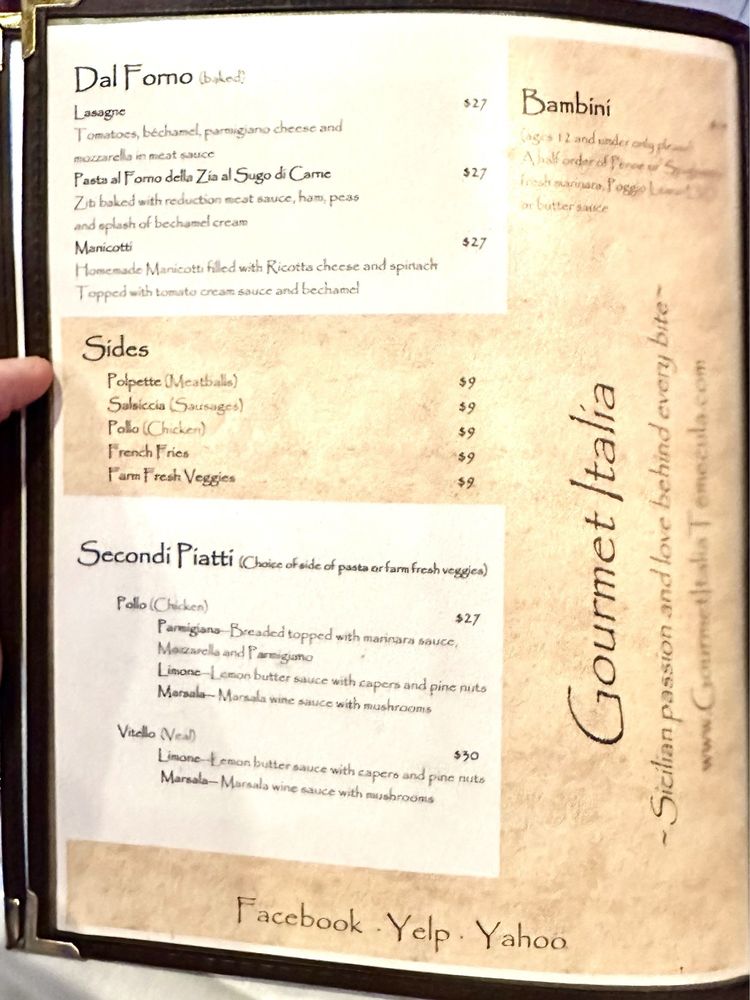 Dal Forno (baked)
Lasagne $27
Tomatoes, béchamel, parmigiano cheese and
mozzarella in meat sauce
Pasta al Forno della Zia al Sugo di Carne $27
Ziti baked with reduction meat sauce, ham, peas
and splash of bechamel cream
Manicotti $27
Homemade Manicotti filled with Ricotta cheese and spinach
Topped with tomato cream sauce and bechamel
Sides
Polpette (Meatballs) $9
Salsiccia (Sausages) $9
Pollo (Chicken) $9
French Fries $9
Farm Fresh Veggies $9
Secondi Piatti (Choice of side of pasta or farm fresh veggies)
Pollo (Chicken) $27
Parmigiana—Breaded topped with marinara sauce,
Mozzarella and Parmigiano
Limone—Lemon butter sauce with capers and pine nuts
Marsala— Marsala wine sauce with mushrooms
Vitello (Veal) $30
Limone—Lemon butter sauce with capers and pine nuts
Marsala— Marsala wine sauce with mushrooms
Bambini
(ages 12 and under only please)
A half order of Penne or
fresh marinara, Poggio
or butter sauce
Gourmet Italia
~ Sicilian passion and love behind every bite ~
www.GourmetItaliaTemecula.com
Facebook · Yelp · Yahoo